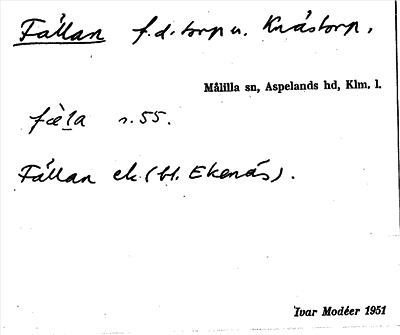 Fållan f.d. torp u. Knåstorp.
Målilla sn, Aspelands hd, Klm. l.
fæ̀la s. 55.
Fållan ek. (bl. Ekenäs).
Ivar Modéer 1951